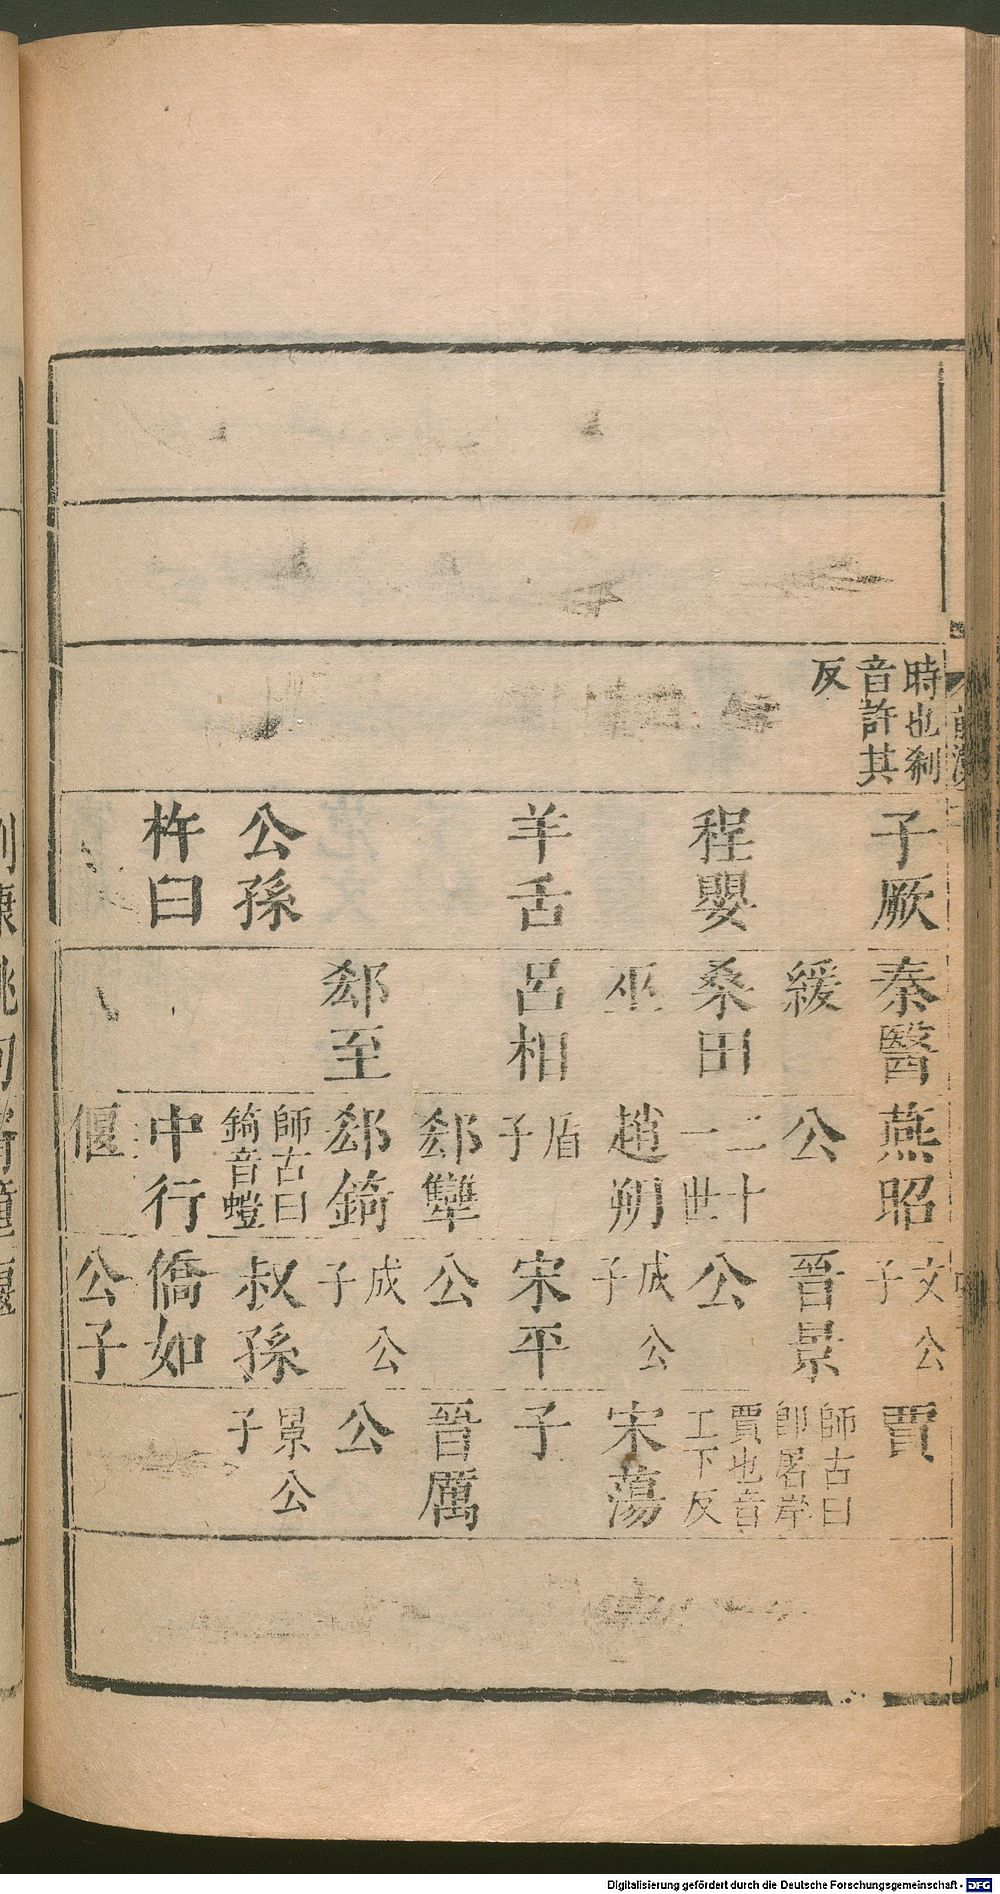 時也剎
音許其
反
子厥
程嬰
羊舌
公孫
杵臼
秦醫
緩
桑田
巫
呂相
郄至
燕昭
公
二十
一世
趙朔
盾
子
郄犨
郄錡
師古曰
錡音螘
中行
偃
文公
子
晉景
公
成公
子
宋平
公
成公
子
叔孫
僑如
公子
賈
師古曰
卽屠岸
賈也音
工下反
宋蕩
子
晉厲
公
景公
子
Digitalisierung gefördert durch die Deutsche Forschungsgemeinschaft - DFG